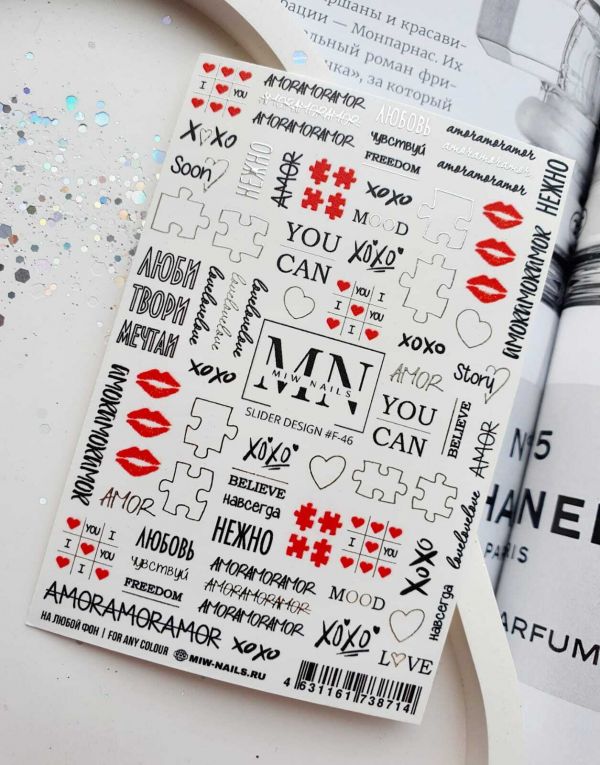 ршаны и красави-
рации — Монпарнас. Их
льный роман фри-
нка», за который
I YOU
AMORAMORAMOR
AMORAMORAMOR
AMORAMORAMOR
ЛЮБОВЬ
чувствуй
FREEDOM
amoramoramor
amoramoramor
amoramoramor
НЕЖНО
XOXO
Soon
НЕЖНО
AMOR
XOXO
MOOD
YOU
CAN
XOXO
AMORAMORAMOR
ЛЮБИ
ТВОРИ
МЕЧТАЙ
lovelovelove
lovelovelove
lovelovelove
YOU I
I YOU
I
XOXO
MN
MIW NAILS
SLIDER DESIGN #F-46
AMOR
Story
XOXO
YOU
CAN
BELIEVE
AMOR
AMORAMORAMOR
XOXO
BELIEVE
навсегда
AMOR
lovelovelove
YOU I
I YOU
I
ЛЮБОВЬ
чувствуй
FREEDOM
НЕЖНО
I YOU
XOXO
AMORAMORAMOR
AMORAMORAMOR
AMORAMORAMOR
MOOD
навсегда
AMORAMORAMOR
XOXO
XOXO
LOVE
НА ЛЮБОЙ ФОН | FOR ANY COLOUR
MIW-NAILS.RU
4 631161 738714
N°5
HANEL
PARIS
ARFUM